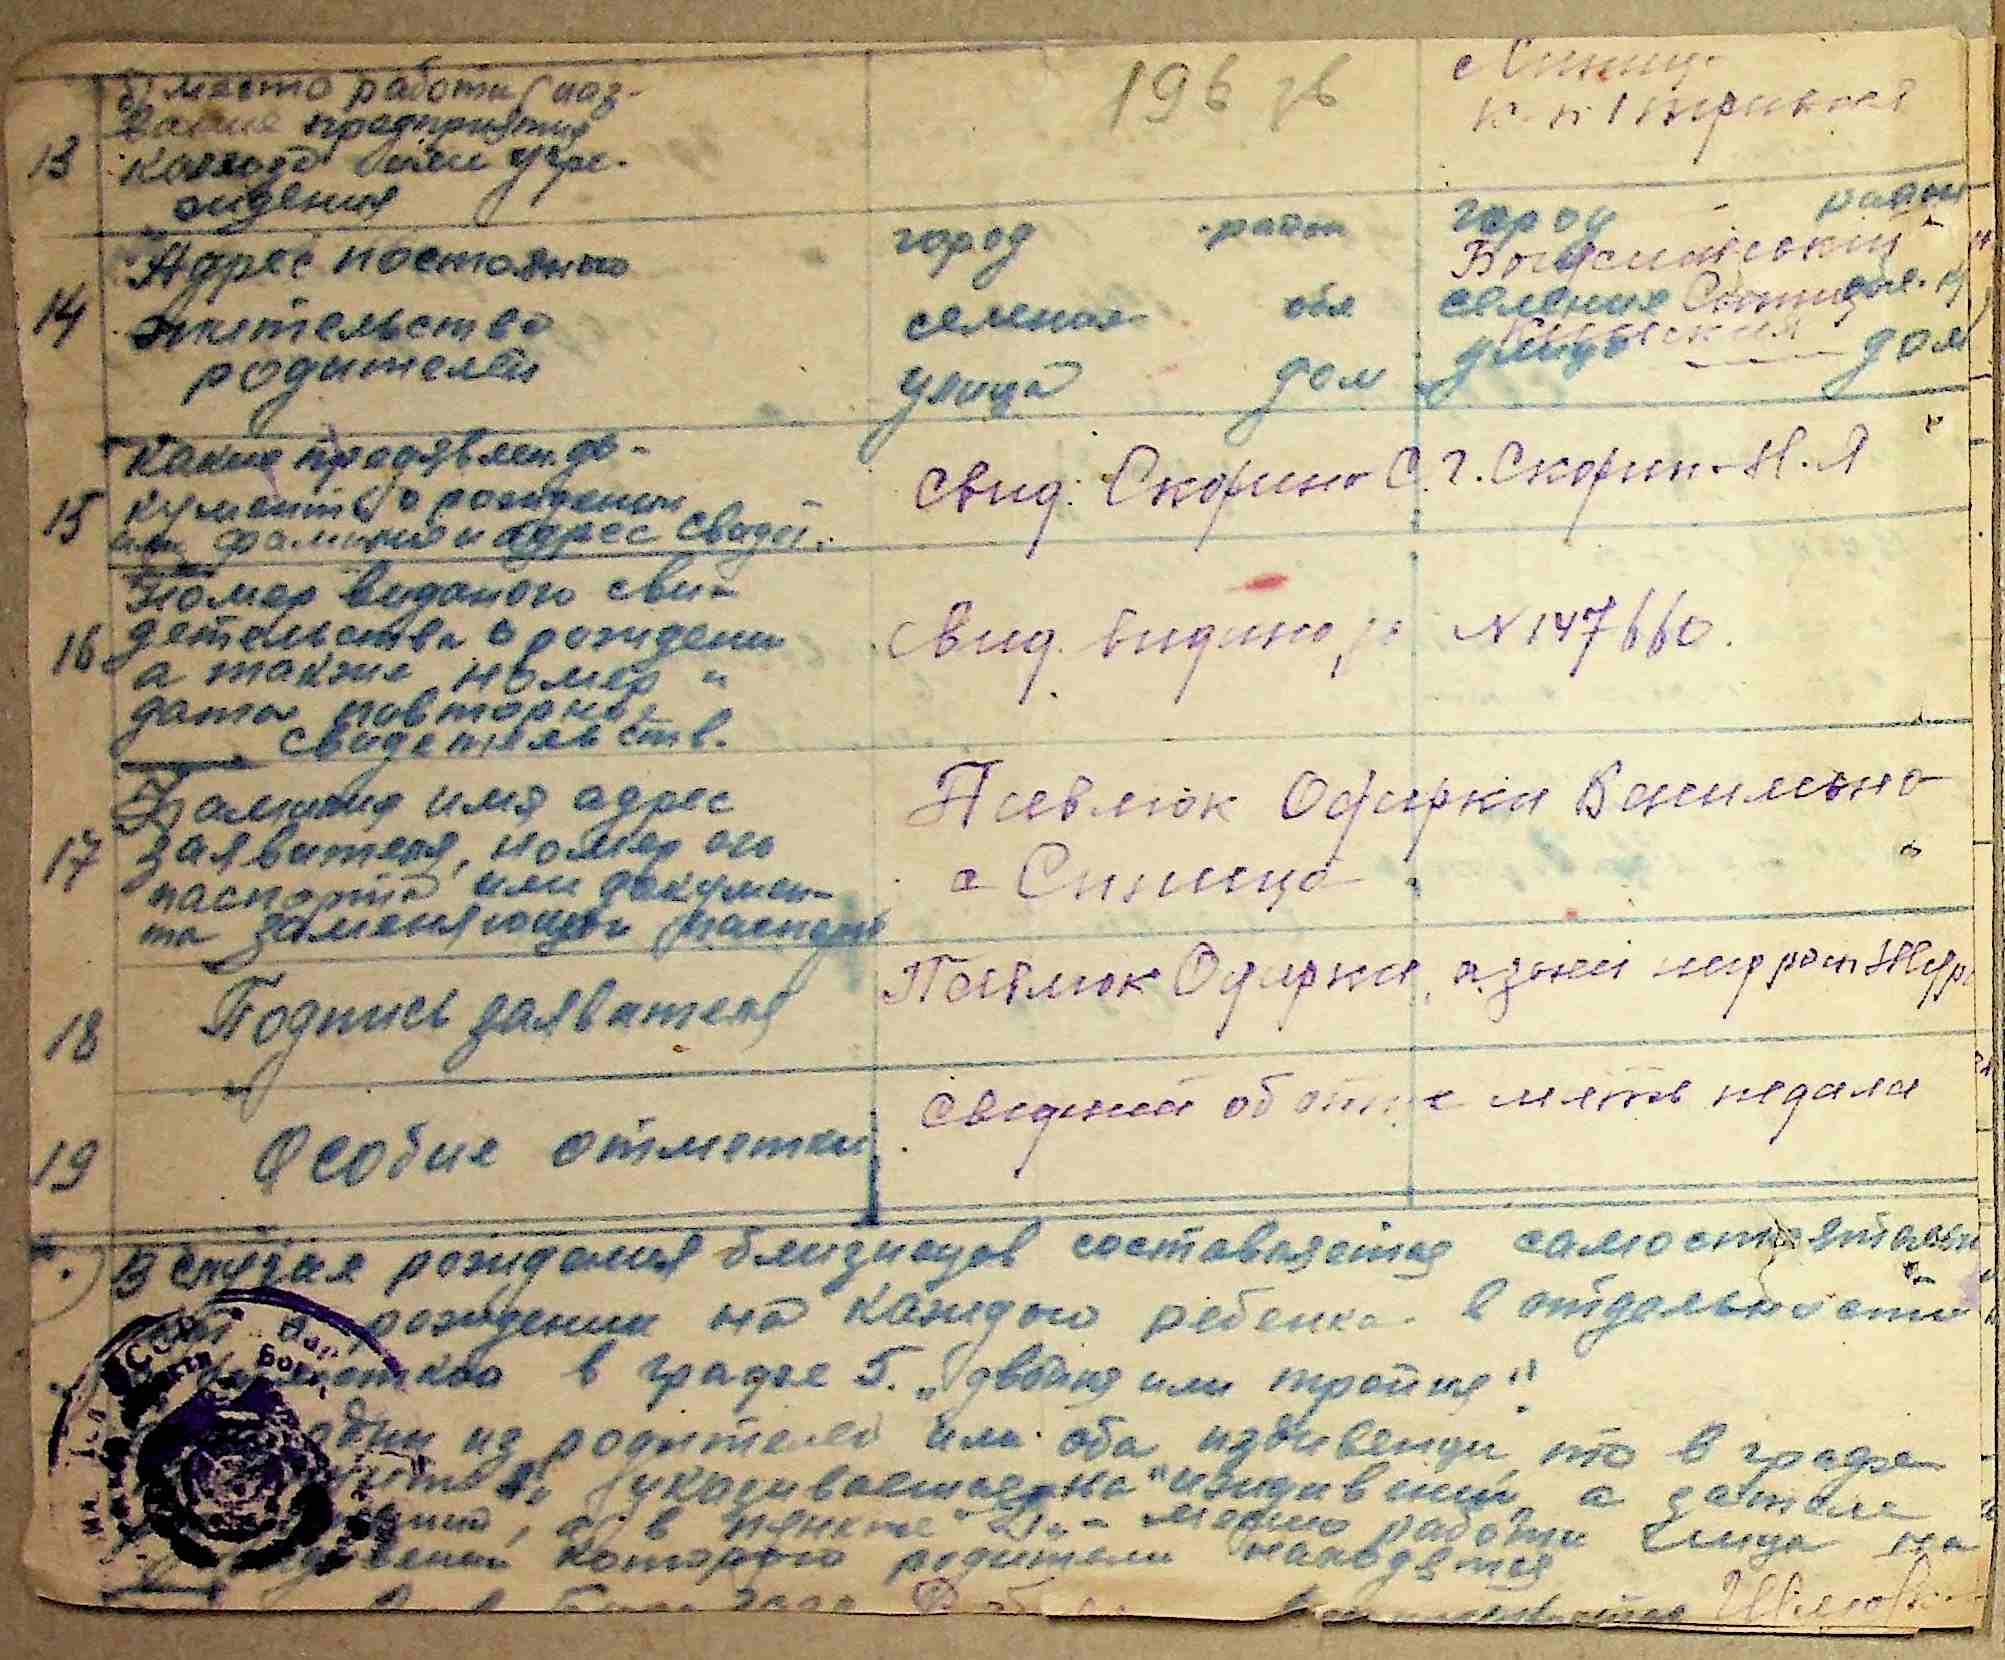 б) место работи (наз-
вание предприятия
13 колхоза или учре-
ждения
196 зв
с Синиц.
14 Адрес постояного
жительство
родителей
город район
селения обл
улица дом
город район
Богуславський
селения Синиц обл. К
улица дом
15 Какие предявлен. до-
кументы о рождении
или фамилия и адрес свидет.
свид. Скорино С. Г. Скорин Н. Я
16 Номер виданого сви-
детельства о рождени
а также номер и
дата повторно
свидетельств.
Свид. видано за N 147660.
17 Фамилия имя адрес
заявителя, номер его
паспорта или докумен-
та заменяющои паспорт
Павлюк Одарки Васильвно
с Синица
18 Подпись заявителя
Павлюк Одарки,
19 Особие отметки
сведений об отце мать не дала
В случае рождения близнецов составляется самостоятельн
рождении на каждого ребенка в отдельности
в графе 5. „двойня или тройня"
один из родителей или оба иждивенци, то в графе
указивается на "иждивений, а затем
в пункте место работи лица на
иждивении которого родители находятся